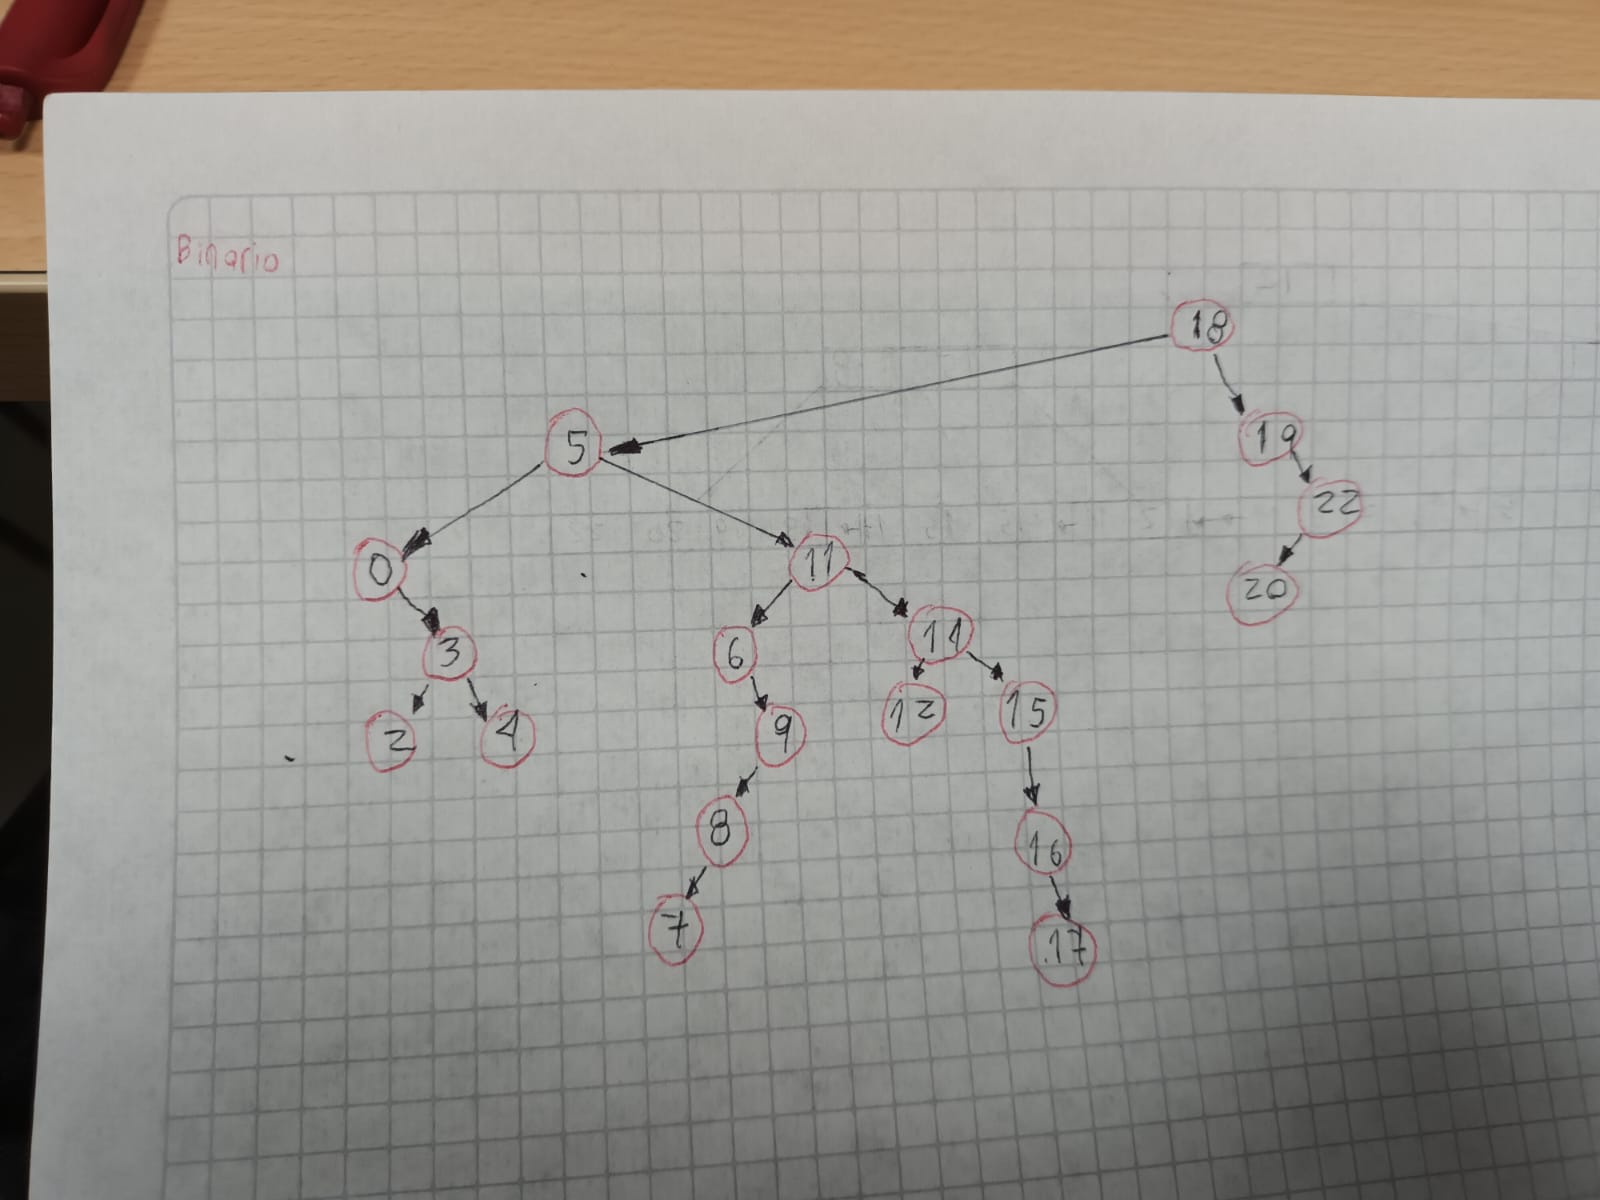 Binario
18
5
19
22
0
11
20
3
6
14
2
4
9
12
15
8
16
7
17